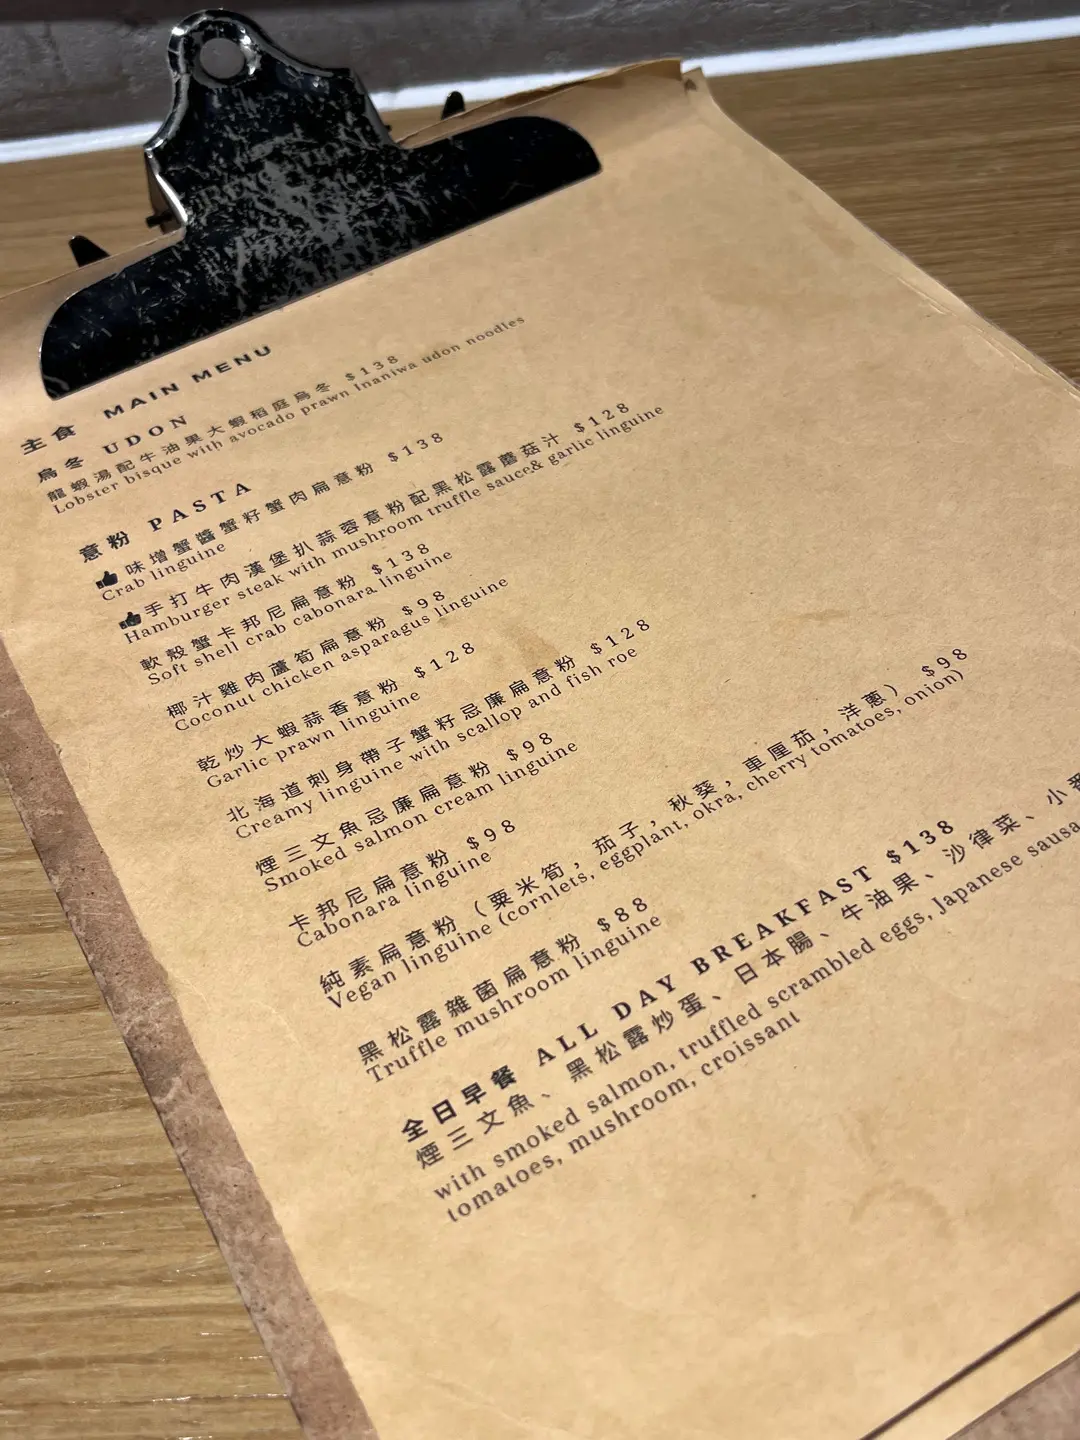 主食 MAIN MENU
烏冬 UDON
龍蝦湯配牛油果大蝦稻庭烏冬 $138
Lobster bisque with avocado prawn Inaniwa udon noodles
意粉 PASTA
味增蟹醬蟹籽蟹肉扁意粉 $138
Crab linguine
手打牛肉漢堡扒蒜蓉意粉配黑松露蘑菇汁 $128
Hamburger steak with mushroom truffle sauce& garlic linguine
軟殼蟹卡邦尼扁意粉 $138
Soft shell crab cabonara linguine
椰汁雞肉蘆筍扁意粉 $98
Coconut chicken asparagus linguine
乾炒大蝦蒜香意粉 $128
Garlic prawn linguine
北海道刺身帶子蟹籽忌廉扁意粉 $128
Creamy linguine with scallop and fish roe
煙三文魚忌廉扁意粉 $98
Smoked salmon cream linguine
卡邦尼扁意粉 $98
Cabonara linguine
純素扁意粉（粟米筍，茄子，秋葵，車厘茄，洋蔥） $98
Vegan linguine (cornlets, eggplant, okra, cherry tomatoes, onion)
黑松露雜菌扁意粉 $88
Truffle mushroom linguine
全日早餐 ALL DAY BREAKFAST $138
煙三文魚、黑松露炒蛋、日本腸、牛油果、沙律菜、小
with smoked salmon, truffled scrambled eggs, Japanese sausa
tomatoes, mushroom, croissant